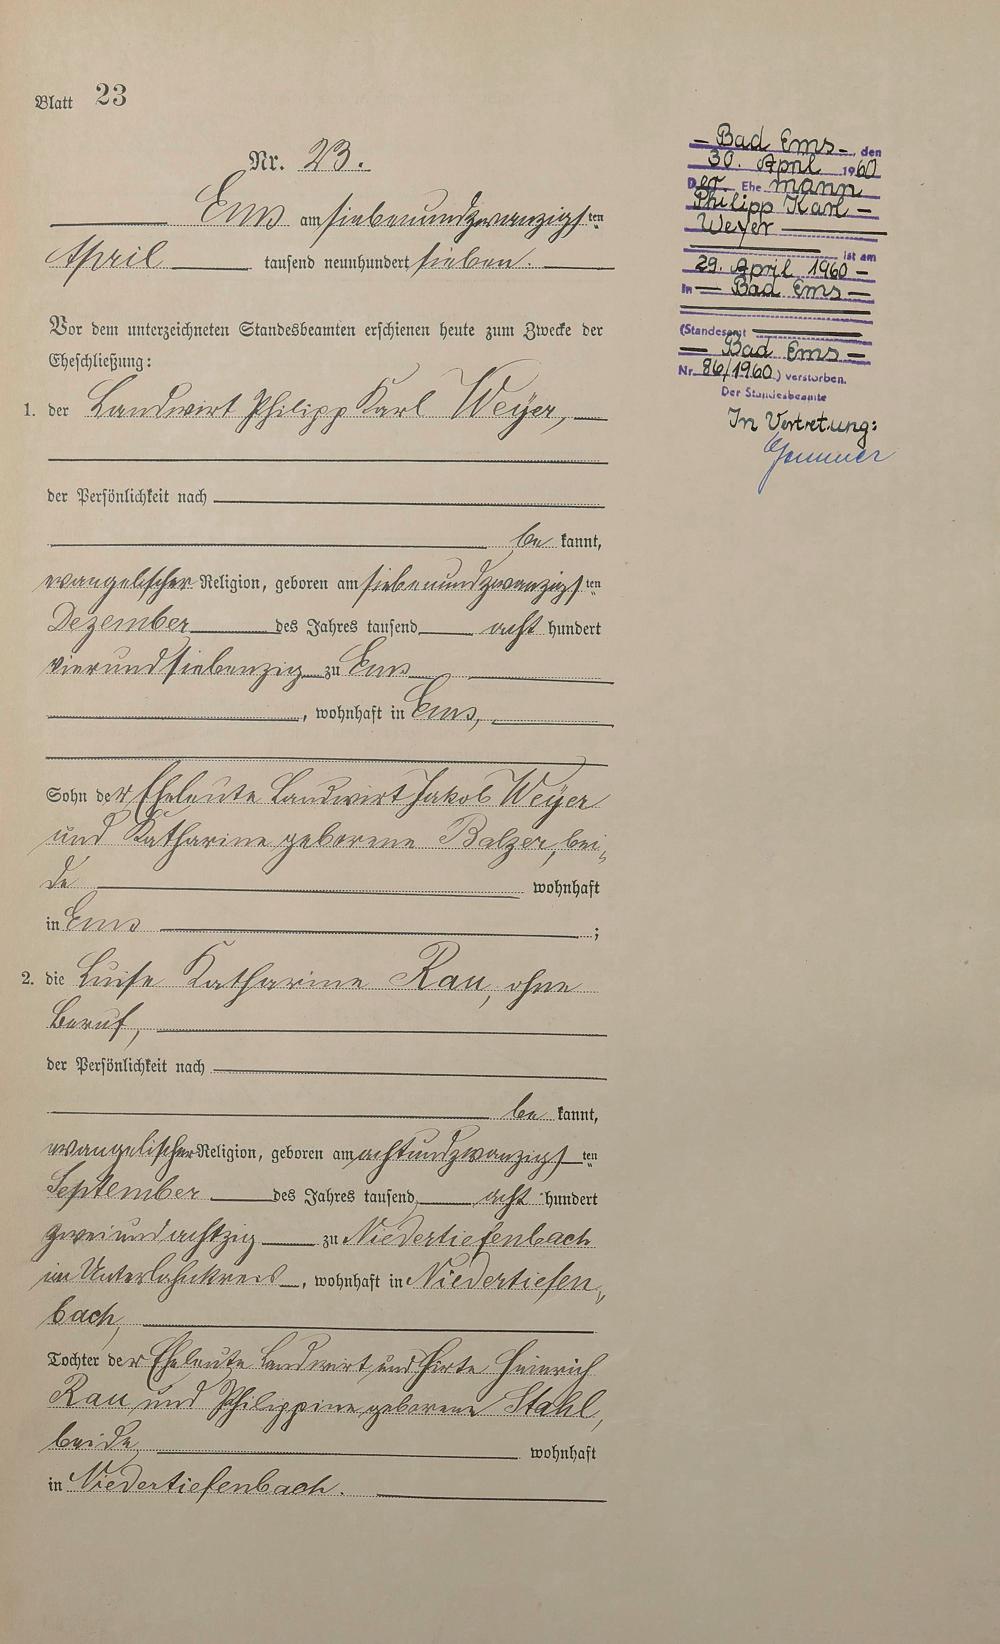 Blatt 23
Nr. 23.
Ems am siebenundzwanzigsten
April tausend neunhundert sieben.
Vor dem unterzeichneten Standesbeamten erschienen heute zum Zwecke der
Eheschließung:
1. der Landwirt Philipp Karl Weyer,
der Persönlichkeit nach
be kannt,
evangelischer Religion, geboren am siebenundzwanzigsten
Dezember des Jahres tausend acht hundert
vierundsiebenzig zu Ems
, wohnhaft in Ems,
Sohn der Eheleute Landwirt Jakob Weyer
und Katharine geborene Balzer, bei-
de wohnhaft
in Ems ;
2. die Luise Katharine Rau, ohne
Beruf,
der Persönlichkeit nach
be kannt,
evangelischer Religion, geboren am achtundzwanzigsten
September des Jahres tausend acht hundert
zweiundachtzig zu Niedertiefenbach
im Unterlahnkreis, wohnhaft in Niedertiefen-
bach,
Tochter der Eheleute Landwirt und Hirte Heinrich
Rau und Philippine geborene Stahl,
beide wohnhaft
in Niedertiefenbach.
– Bad Ems –, den
30. April 1960
Der Ehe mann
Philipp Karl –
Weyer
ist am
29. April 1960 –
in – Bad Ems –
(Standesamt
– Bad Ems –
Nr. 86/1960) verstorben.
Der Standesbeamte
In Vertretung: